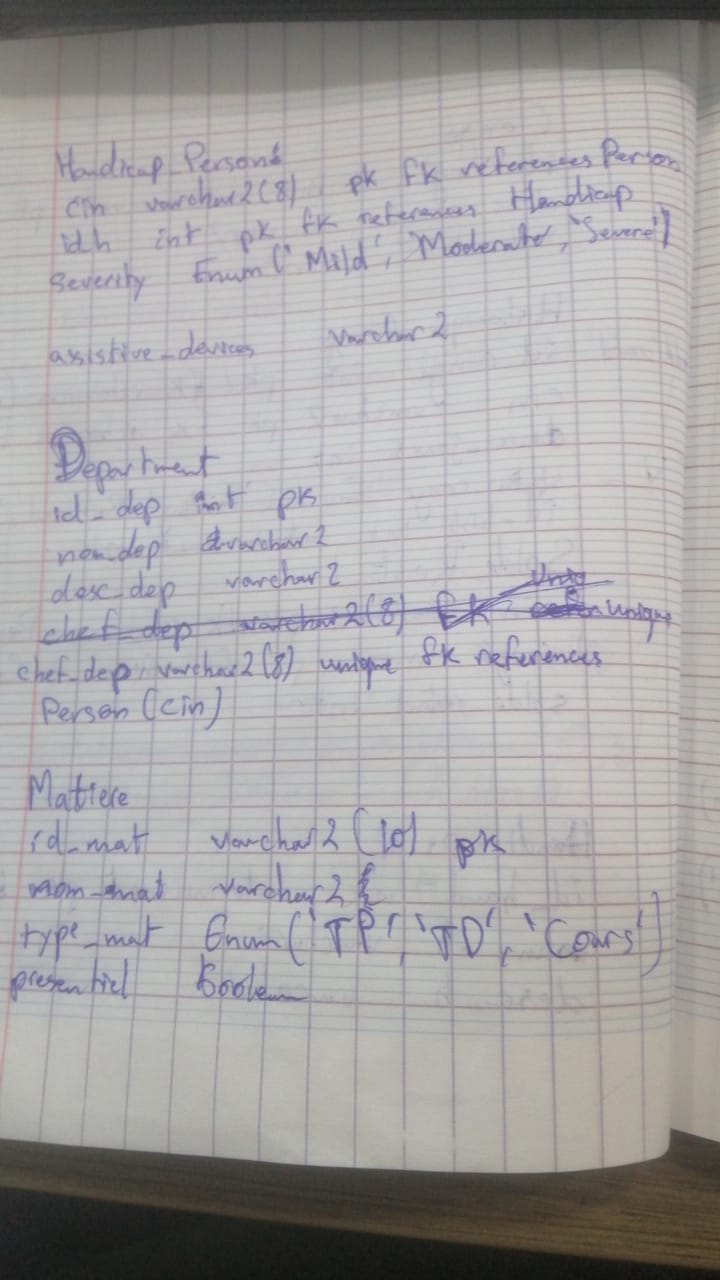 Handicap_Person
cin varchar2(8), pk fk references Person
idh int pk fk references Handicap
severity Enum('Mild', 'Moderate', 'Severe')
assistive_devices varchar2
Department
id_dep int pk
nom_dep varchar2
desc_dep varchar2
chef_dep varchar2(8) fk unique
chef_dep, varchar2(8) unique fk references
Person (cin)
Matiere
id_mat varchar2(10) pk
nom_mat varchar2
type_mat Enum('TP', 'TD', 'Cours')
presentiel Boolean